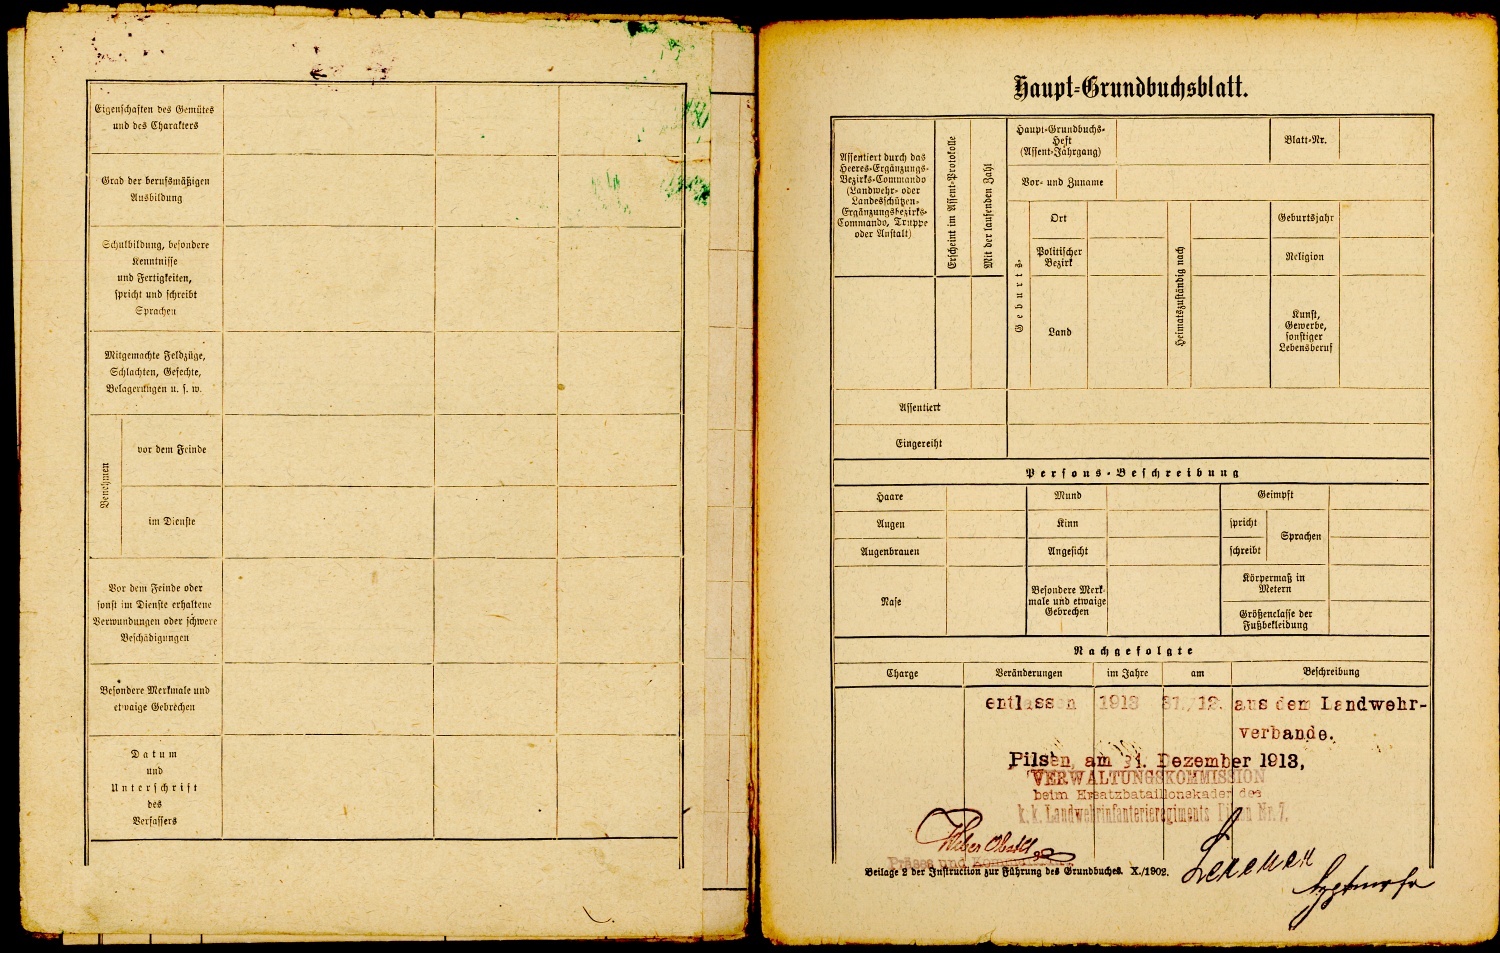 Eigenschaften des Gemütes
und des Charakters
Grad der berufsmäßigen
Ausbildung
Schulbildung, besondere
Kenntnisse
und Fertigkeiten,
spricht und schreibt
Sprachen
Mitgemachte Feldzüge,
Schlachten, Gefechte,
Belagerungen u. s. w.
Benehmen
vor dem Feinde
im Dienste
Vor dem Feinde oder
sonst im Dienste erhaltene
Verwundungen oder schwere
Beschädigungen
Besondere Merkmale und
etwaige Gebrechen
Datum
und
Unterschrift
des
Verfassers
Haupt-Grundbuchsblatt.
Assentiert durch das
Heeres-Ergänzungs-
Bezirks-Commando
(Landwehr- oder
Landesschützen-
Ergänzungsbezirks-
Commando, Truppe
oder Anstalt)
Erscheint im Assent-Protokolle
Mit der laufenden Zahl
Haupt-Grundbuchs-
Heft
(Assent-Jahrgang)
Blatt-Nr.
Vor- und Zuname
Geburts-
Ort
Politischer
Bezirk
Land
Heimatszuständig nach
Geburtsjahr
Religion
Kunst,
Gewerbe,
sonstiger
Lebensberuf
Assentiert
Eingereiht
Persons-Beschreibung
Haare
Mund
Geimpft
Augen
Kinn
spricht
Sprachen
Augenbrauen
Angesicht
schreibt
Nase
Besondere Merk-
male und etwaige
Gebrechen
Körpermaß in
Metern
Größenclasse der
Fußbekleidung
Nachgefolgte
Charge
Veränderungen
im Jahre
am
Beschreibung
entlassen 1913 31./12. aus dem Landwehr-
verbande.
Pilsen, am 31. Dezember 1913,
VERWALTUNGSKOMMISSION
beim Ersatzbataillonskader des
k. k. Landwehrinfanterieregiments Pilsen Nr. 7.
Weber Obstlt
Präses und Kommandant.
Beilage 2 der Instruction zur Führung des Grundbuches. X./1902.